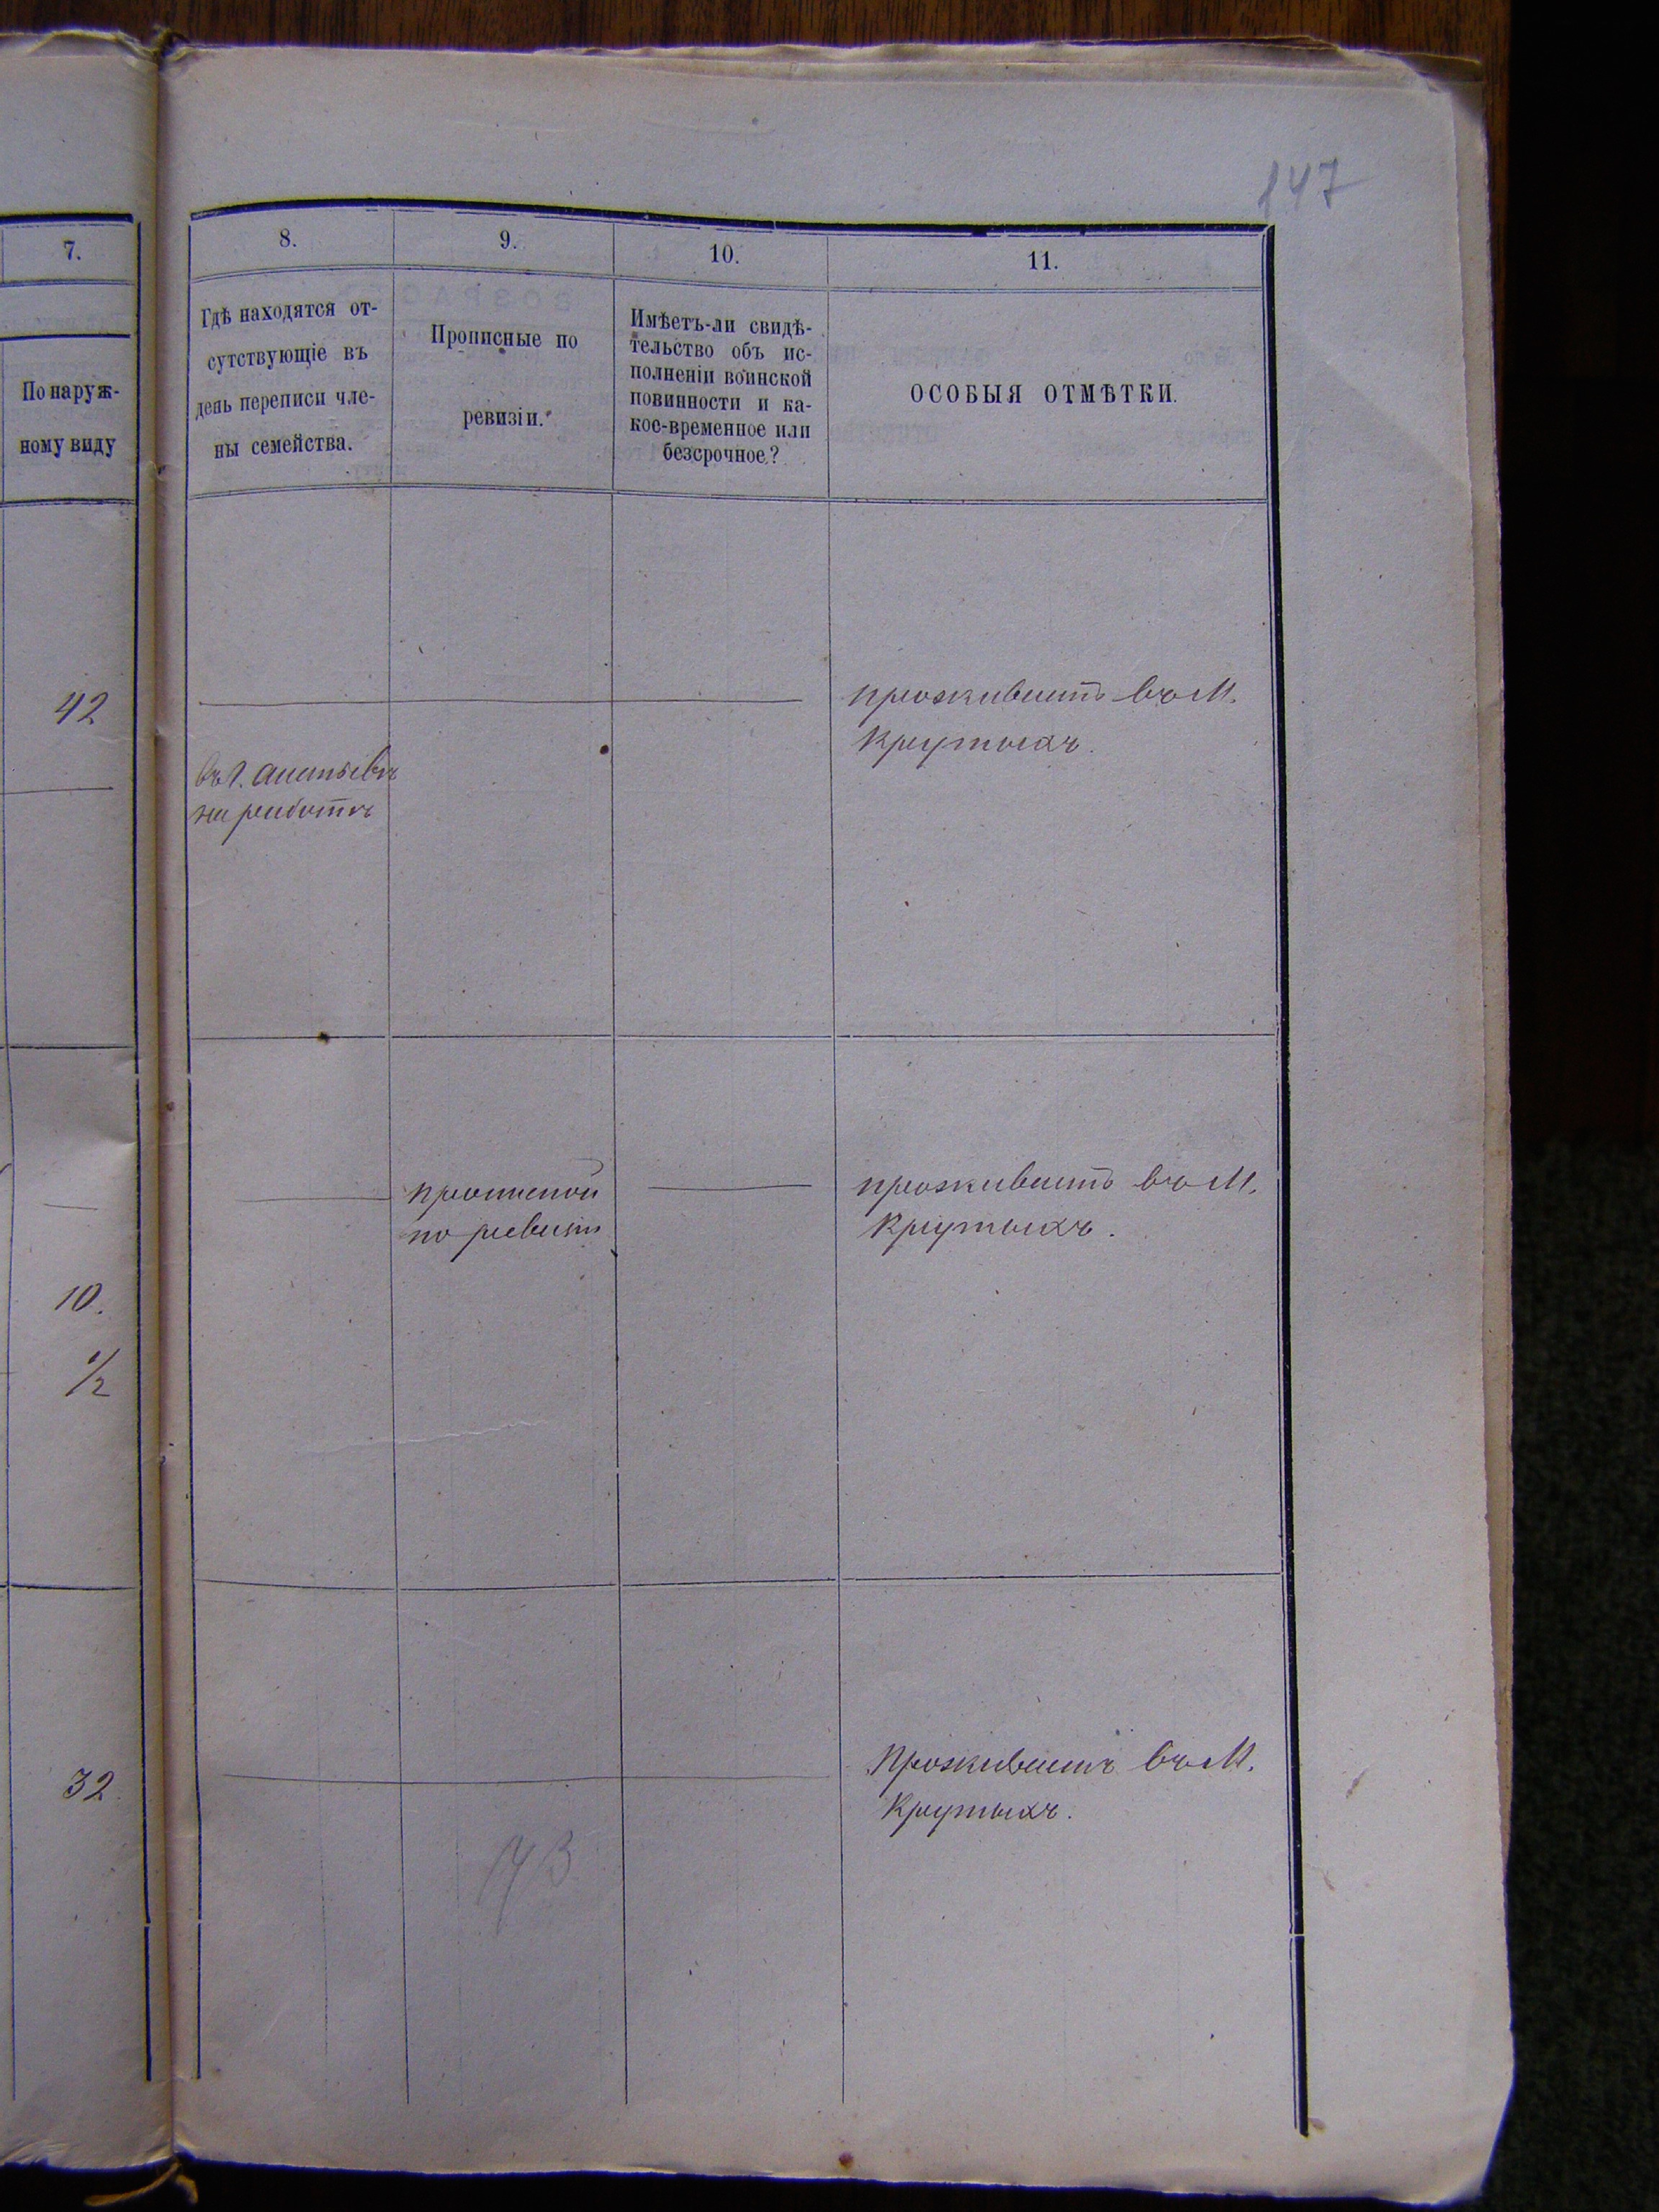 147
7.
8.
9.
10.
11.
По наруж-
ному виду
Гдѣ находятся от-
сутствующіе въ
день переписи чле-
ны семейства.
Прописные по
ревизіи.
Имѣетъ-ли свидѣ-
тельство объ ис-
полненіи воинской
повинности и ка-
кое-временное или
безсрочное?
ОСОБЫЯ ОТМѢТКИ.
42
проживаетъ въ М.
Крутыхъ.
въ г.
на работѣ
прописной
по ревизіи
проживаетъ въ М.
Крутыхъ.
10.
1/2
32
Проживаетъ въ М.
Крутыхъ.